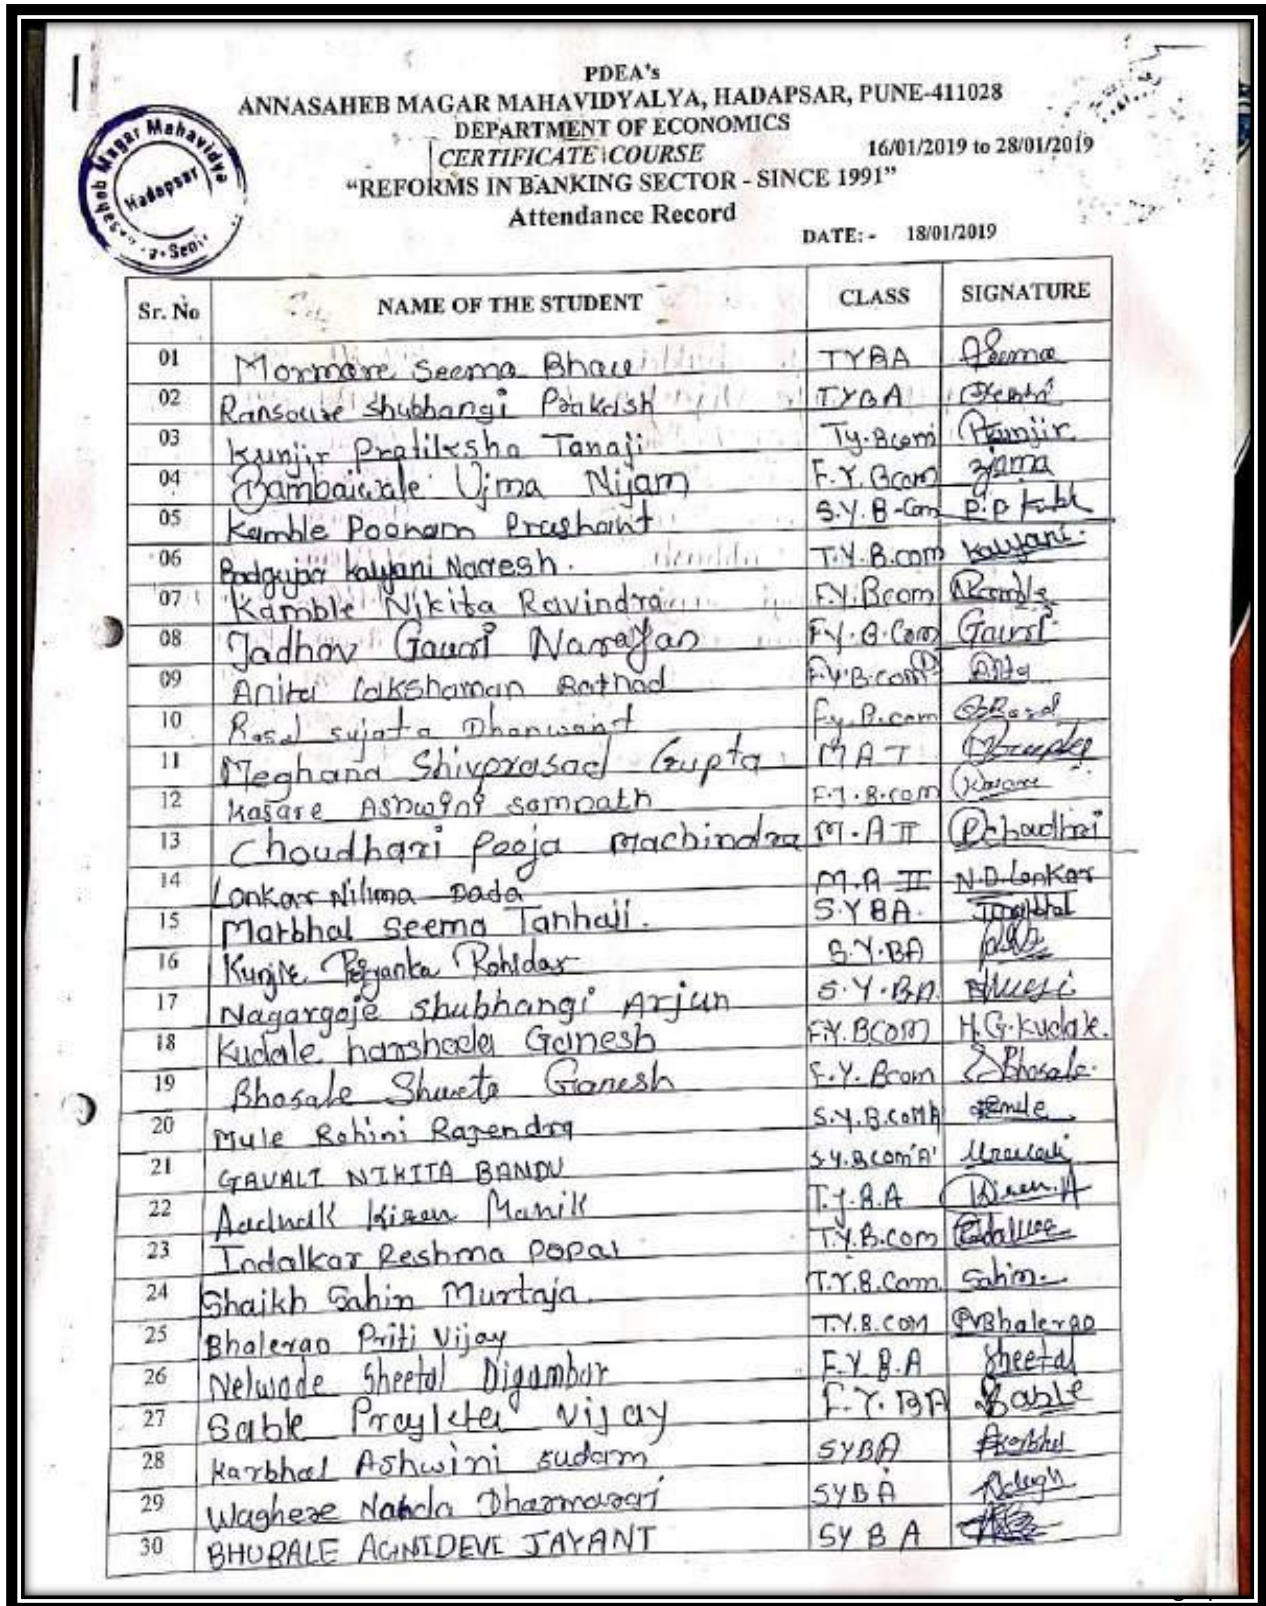 PDEA's
ANNASAHEB MAGAR MAHAVIDYALYA, HADAPSAR, PUNE-411028
DEPARTMENT OF ECONOMICS
CERTIFICATE COURSE 16/01/2019 to 28/01/2019
"REFORMS IN BANKING SECTOR - SINCE 1991"
Attendance Record
DATE:- 18/01/2019
Magar Mahavidya
Hadapsar
Sr. No NAME OF THE STUDENT CLASS SIGNATURE
01 Mormare Seema Bhau TYBA Seema
02 Ransoure Shubhangi Prakash TYBA
03 Kunjir Pratiksha Tanaji Ty.Bcom Pkunjir
04 Bambaiwale Ujma Nijam F.Y. Bcom
05 Kamble Poonam Prashant S.Y.B-Com
06 Badgujar kalyani Naresh. T.Y.B.com kalyani.
07 Kamble Nikita Ravindra F.Y.Bcom
08 Jadhav Gauri Narayan F.Y.B.Com Gauri
09 Anita lakshaman Rathod F.Y.B.com
10 Rasal sujata Dhanwant F.y.B.com
11 Meghana Shivprasad Gupta M A I MGupta
12 Kasare Ashwini sampath F.Y.B.com
13 Choudhari Pooja Machindra M.A II Pchaudhri
14 Lonkar Nilima Dada M.A II N.D.Lonkar
15 Marbhal Seema Tanhaji. S.Y BA.
16 Kunjir Priyanka Rohidas S.Y.BA
17 Nagargoje Shubhangi Arjun S.Y.BA
18 Kudale harshada Ganesh F.Y.BCOM H.G.Kudale.
19 Bhosale Shweta Ganesh F.Y.Bcom SBhosale.
20 Mule Rohini Rajendra S.Y.B.comA
21 GAVALI NIKITA BANDU S.Y.Bcom'A'
22 Aadhalk Kiran Manik T.Y.B.A Kiran.A
23 Indalkar Reshma Popat T.Y.B.com
24 Shaikh Sahin Murtaja. T.Y.B.Com Sahin
25 Bhalerao Priti Vijay T.Y.B.COM PVBhalerao
26 Nelwade Sheetal Digambar F.Y B.A Sheetal
27 Sable Vijay F.Y.BA Sable
28 Karbhal Ashwini sudam SYBA
29 Waghere Nanda Dharmaraj SYBA
30 BHURALE AGNIDEVI JAYANT SY B A